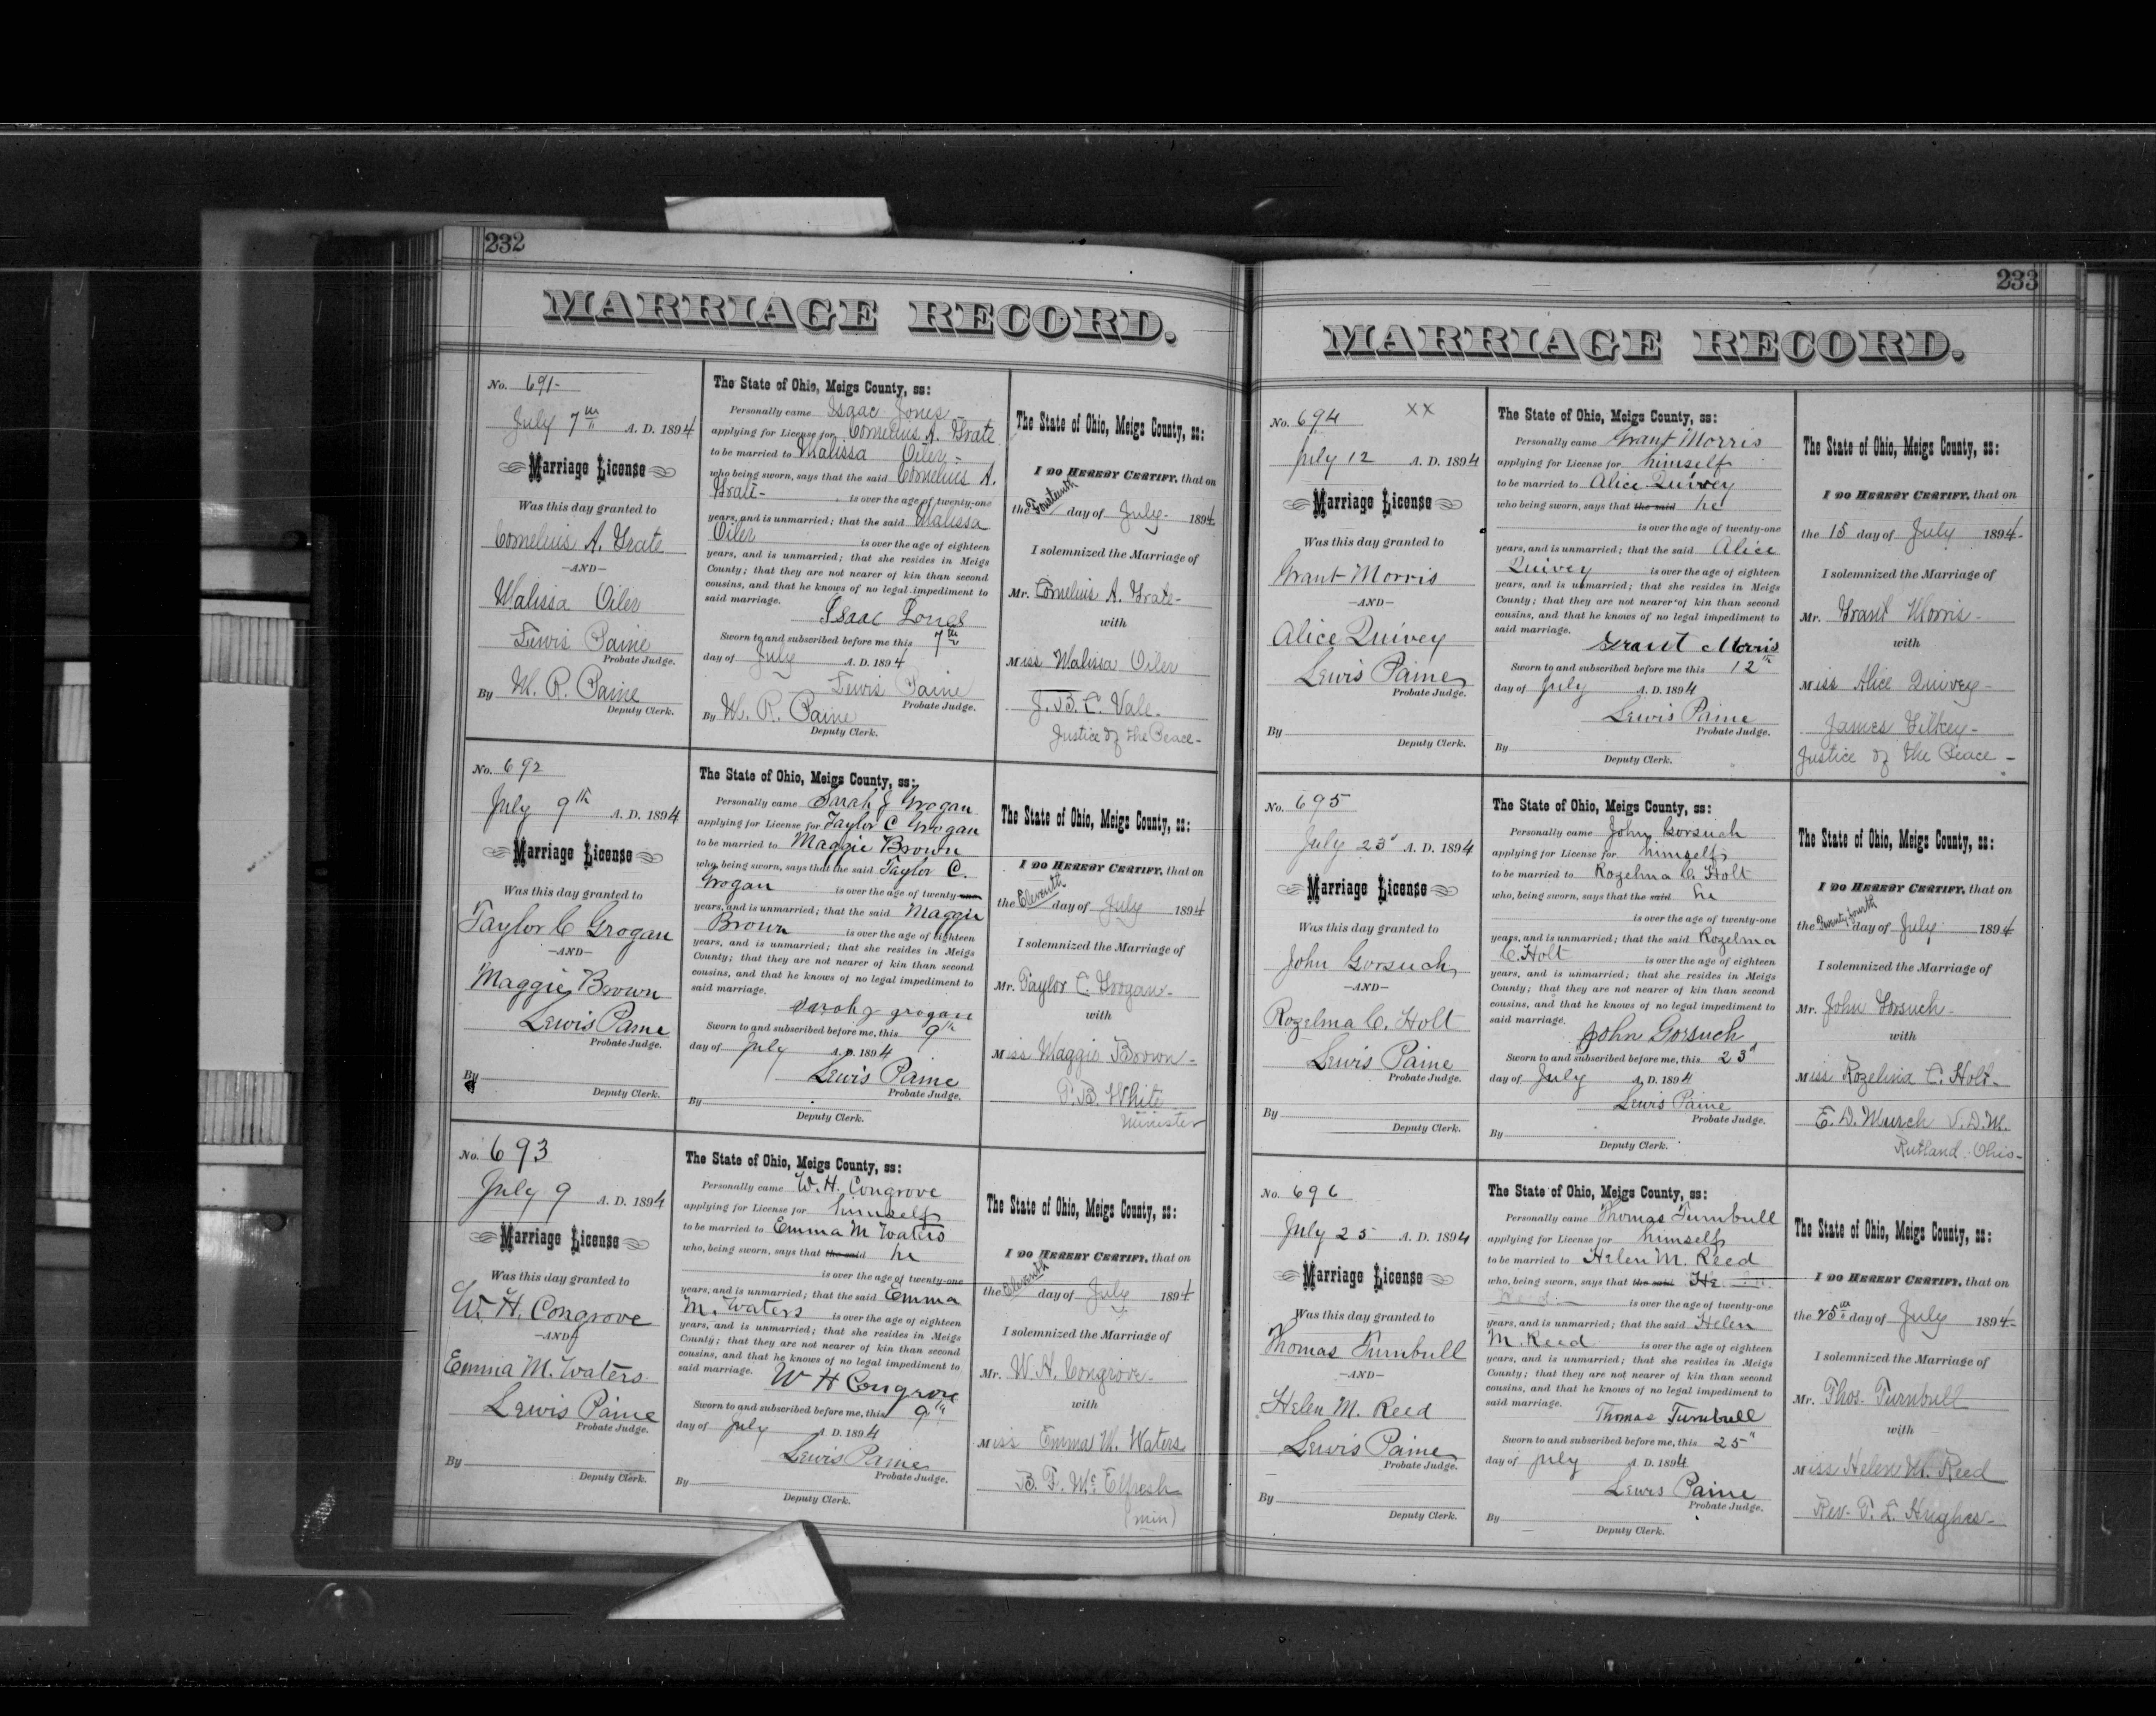 232
MARRIAGE RECORD.
No. 691-
July 7th A. D. 1894
Marriage License
Was this day granted to
Cornelius A. Grate
—AND—
Malissa Oiler
Lewis Paine
Probate Judge.
By M. R. Paine
Deputy Clerk.
The State of Ohio, Meigs County, ss:
Personally came Isaac Jones
applying for License for Cornelius A. Grate
to be married to Malissa Oiler-
who being sworn, says that the said Cornelius A.
Grate- is over the age of twenty-one
years, and is unmarried; that the said Malissa
Oiler is over the age of eighteen
years, and is unmarried; that she resides in Meigs
County; that they are not nearer of kin than second
cousins, and that he knows of no legal impediment to
said marriage.
Isaac Jones
Sworn to and subscribed before me this 7th
day of July A. D. 1894
Lewis Paine
Probate Judge.
By M. R. Paine
Deputy Clerk.
The State of Ohio, Meigs County, ss:
I DO HEREBY CERTIFY, that on
the Fourteenth day of July- 1894
I solemnized the Marriage of
Mr. Cornelius A. Grate-
with
Miss Malissa Oiler
J. B. C. Vale-
Justice of the Peace-
No. 692
July 9th A. D. 1894
Marriage License
Was this day granted to
Taylor C Grogan
—AND—
Maggie Brown
Lewis Paine
Probate Judge.
By
Deputy Clerk.
The State of Ohio, Meigs County, ss:
Personally came Sarah J Grogan
applying for License for Taylor C Grogan
to be married to Maggie Brown
who, being sworn, says that the said Taylor C.
Grogan is over the age of twenty-one
years, and is unmarried; that the said Maggie
Brown is over the age of eighteen
years, and is unmarried; that she resides in Meigs
County; that they are not nearer of kin than second
cousins, and that he knows of no legal impediment to
said marriage.
Sarah J grogan
Sworn to and subscribed before me, this 9th
day of July A. D. 1894
Lewis Paine
Probate Judge.
By
Deputy Clerk.
The State of Ohio, Meigs County, ss:
I DO HEREBY CERTIFY, that on
the Eleventh day of July 1894
I solemnized the Marriage of
Mr. Taylor C. Grogan-
with
Miss Maggie Brown-
P. B. White
Minister
No. 693
July 9 A. D. 1894
Marriage License
Was this day granted to
W. H. Congrove
—AND—
Emma M. Waters
Lewis Paine
Probate Judge.
By
Deputy Clerk.
The State of Ohio, Meigs County, ss:
Personally came W. H. Congrove
applying for License for himself
to be married to Emma M Waters
who, being sworn, says that the said he
is over the age of twenty-one
years, and is unmarried; that the said Emma
M. Waters is over the age of eighteen
years, and is unmarried; that she resides in Meigs
County; that they are not nearer of kin than second
cousins, and that he knows of no legal impediment to
said marriage.
W H Congrove
Sworn to and subscribed before me, this 9th
day of July A. D. 1894
Lewis Paine
Probate Judge.
By
Deputy Clerk.
The State of Ohio, Meigs County, ss:
I DO HEREBY CERTIFY, that on
the Eleventh day of July 1894
I solemnized the Marriage of
Mr. W. H. Congrove-
with
Miss Emma M. Waters
B. F. Mc Elfresh
(min)
233
MARRIAGE RECORD.
No. 694 XX
July 12 A. D. 1894
Marriage License
Was this day granted to
Grant Morris
—AND—
Alice Quivey
Lewis Paine
Probate Judge.
By
Deputy Clerk.
The State of Ohio, Meigs County, ss:
Personally came Grant Morris
applying for License for himself
to be married to Alice Quivey
who being sworn, says that the said he
is over the age of twenty-one
years, and is unmarried; that the said Alice
Quivey is over the age of eighteen
years, and is unmarried; that she resides in Meigs
County; that they are not nearer of kin than second
cousins, and that he knows of no legal impediment to
said marriage.
Grant Morris
Sworn to and subscribed before me this 12th
day of July A. D. 1894
Lewis Paine
Probate Judge.
By
Deputy Clerk.
The State of Ohio, Meigs County, ss:
I DO HEREBY CERTIFY, that on
the 15 day of July 1894-
I solemnized the Marriage of
Mr. Grant Morris-
with
Miss Alice Quivey-
James Gilkey-
Justice of the Peace-
No. 695
July 23d A. D. 1894
Marriage License
Was this day granted to
John Gorsuch
—AND—
Rozelma C. Holt
Lewis Paine
Probate Judge.
By
Deputy Clerk.
The State of Ohio, Meigs County, ss:
Personally came John Gorsuch
applying for License for himself
to be married to Rozelma C. Holt
who, being sworn, says that the said he
is over the age of twenty-one
years, and is unmarried; that the said Rozelma
C. Holt is over the age of eighteen
years, and is unmarried; that she resides in Meigs
County; that they are not nearer of kin than second
cousins, and that he knows of no legal impediment to
said marriage.
John Gorsuch
Sworn to and subscribed before me, this 23d
day of July A. D. 1894
Lewis Paine
Probate Judge.
By
Deputy Clerk.
The State of Ohio, Meigs County, ss:
I DO HEREBY CERTIFY, that on
the Twenty fourth day of July 1894
I solemnized the Marriage of
Mr. John Gorsuch-
with
Miss Rozelma C. Holt-
E. D. Murch V. D. M.
Rutland Ohio-
No. 696
July 25 A. D. 1894
Marriage License
Was this day granted to
Thomas Turnbull
—AND—
Helen M. Reed
Lewis Paine
Probate Judge.
By
Deputy Clerk.
The State of Ohio, Meigs County, ss:
Personally came Thomas Turnbull
applying for License for himself
to be married to Helen M. Reed
who, being sworn, says that the said He
is over the age of twenty-one
years, and is unmarried; that the said Helen
M. Reed is over the age of eighteen
years, and is unmarried; that she resides in Meigs
County; that they are not nearer of kin than second
cousins, and that he knows of no legal impediment to
said marriage.
Thomas Turnbull
Sworn to and subscribed before me, this 25"
day of July A. D. 1894
Lewis Paine
Probate Judge.
By
Deputy Clerk.
The State of Ohio, Meigs County, ss:
I DO HEREBY CERTIFY, that on
the 25th day of July 1894-
I solemnized the Marriage of
Mr. Thos. Turnbull
with
Miss Helen M. Reed
Rev. T. L. Hughes-